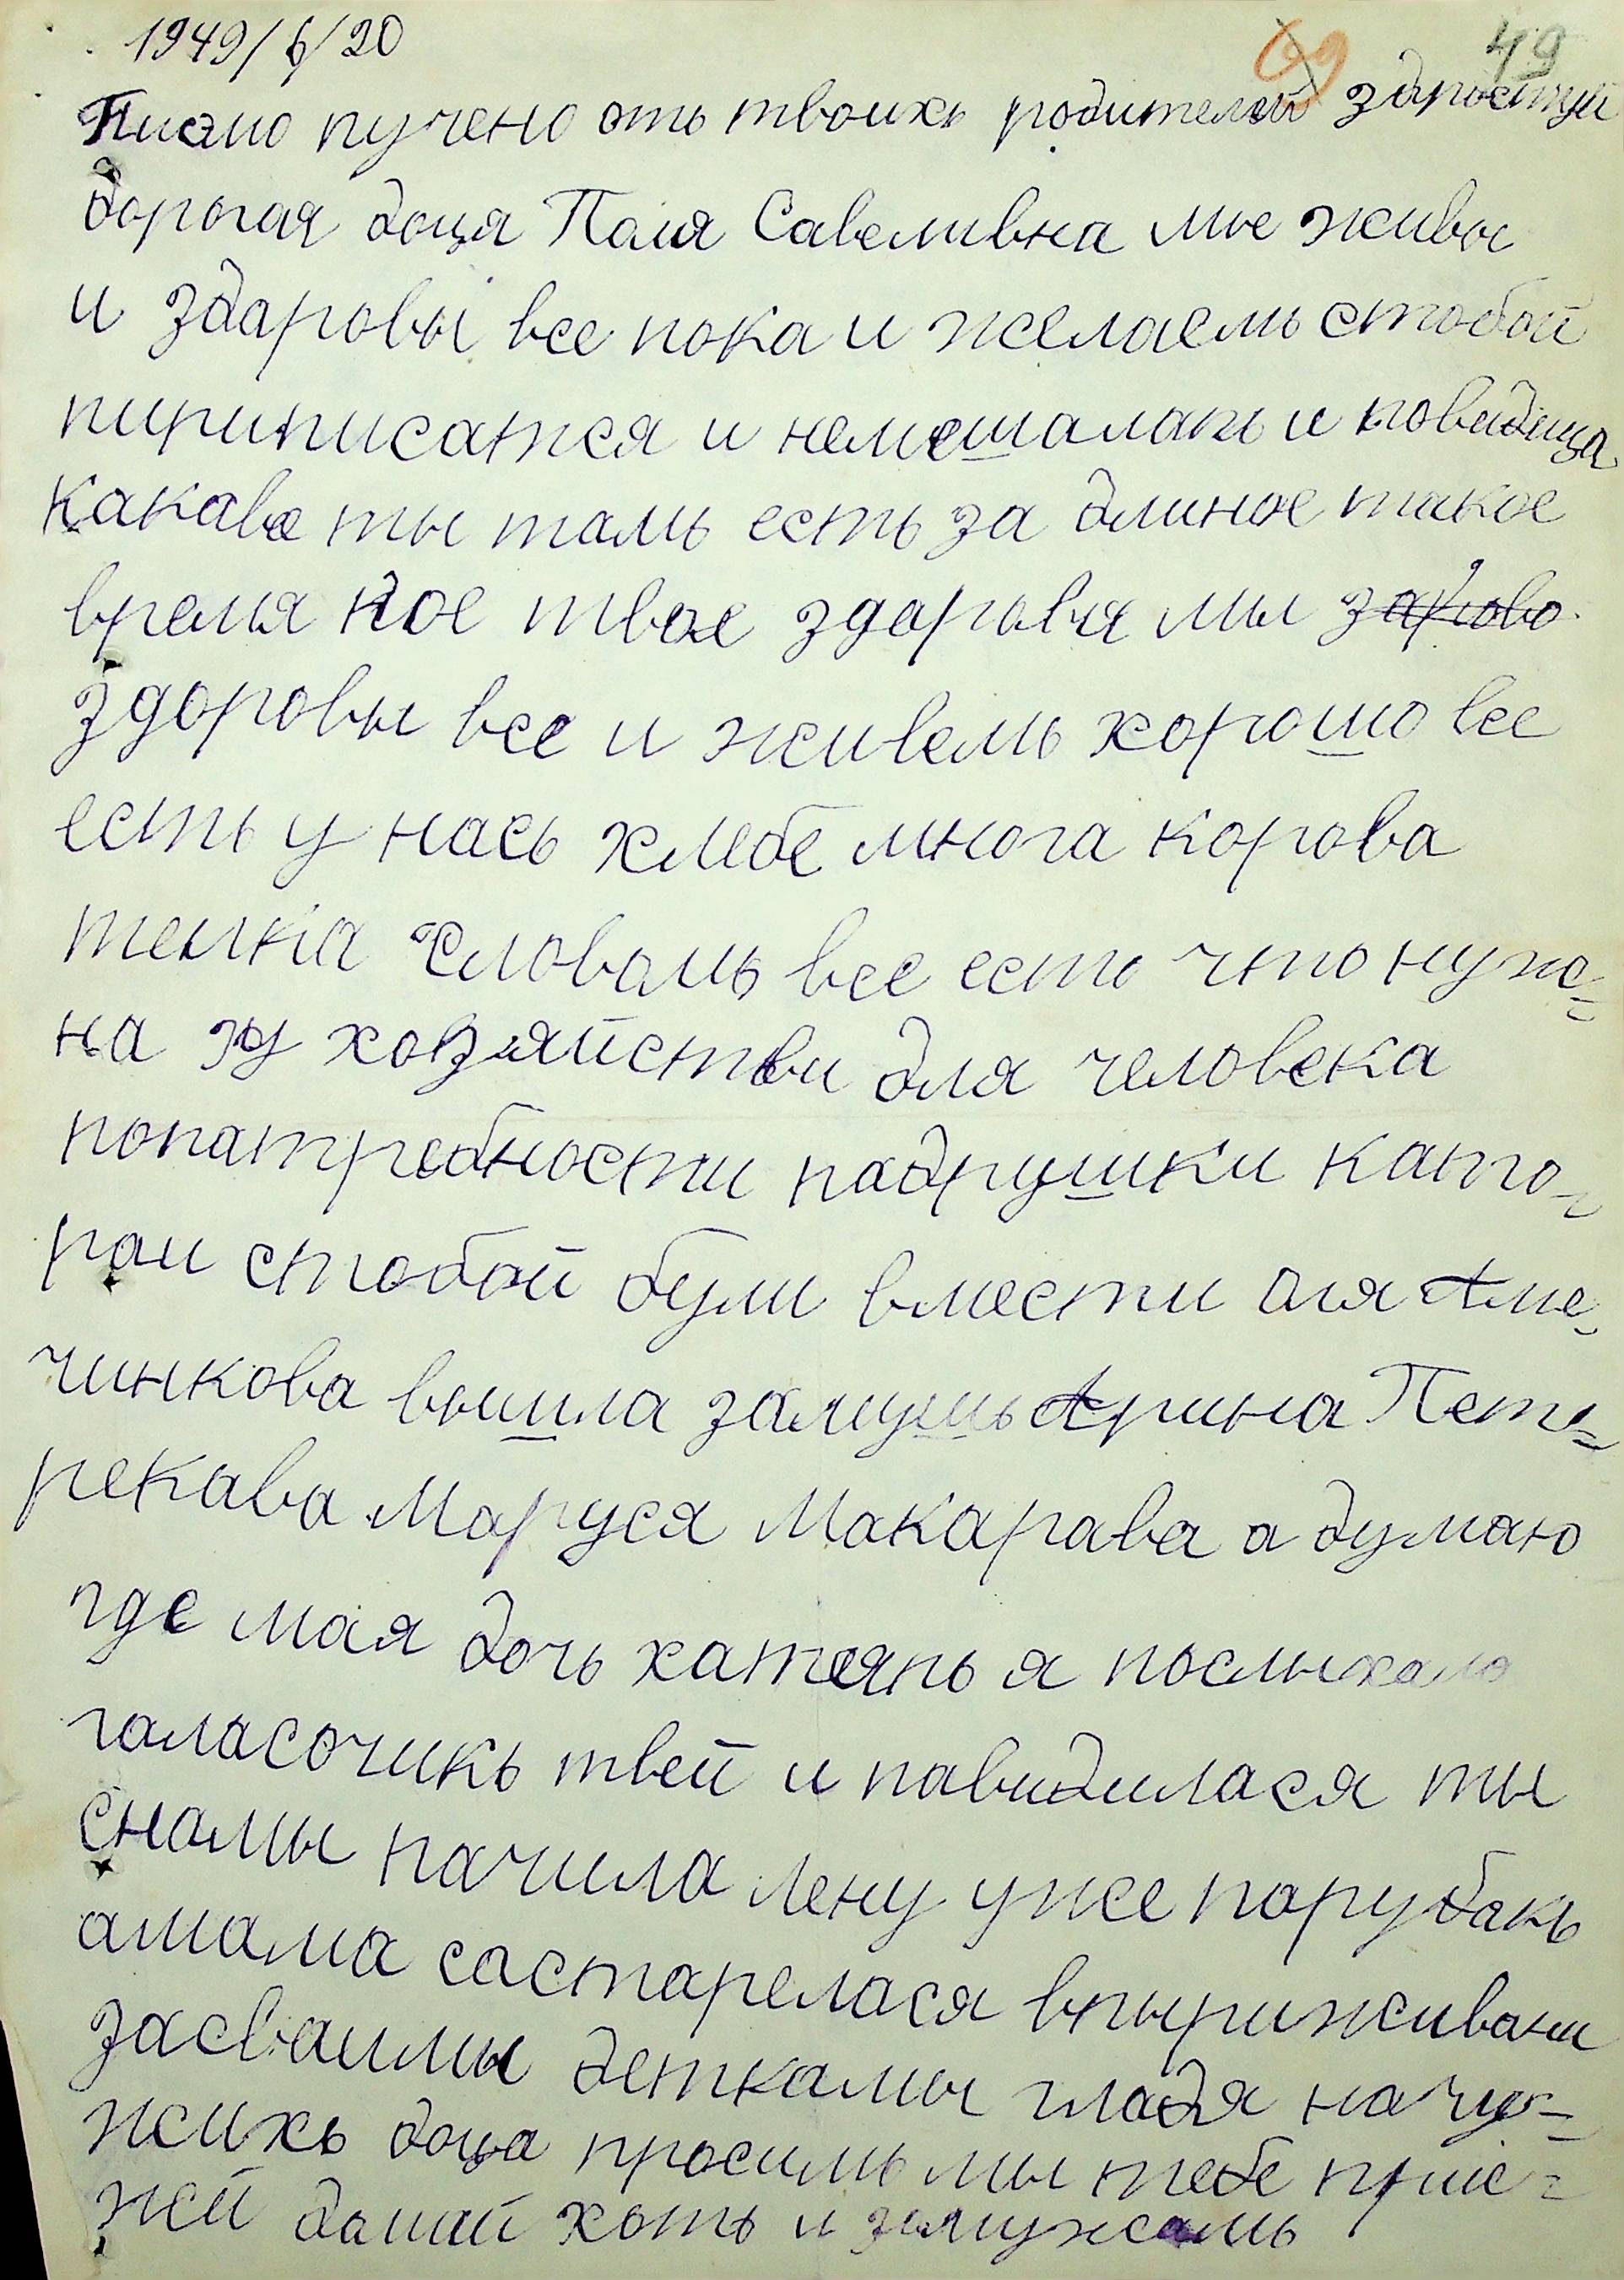 1949/6/20
69 49
Писмо пучено отъ твоихъ родителей здрастуй
дорогая доця Поля Савеливна мые живы
и здаровы все пока и желаемъ стобой
пириписатся и немешалабы и повидеца
какаве ты тамъ есть за длиное такое
время кое твое здаровя мы зарово
здоровы все и живемъ хорошо все
есть у насъ хлебе многа корова
телка словомъ все есть что нуж=
на у хозяйстви для человека
попатребности падрушки като-
раи стобой були вмести Оля Аме-
чинкова вышла замушъ Арина Пет=
рекава Маруся Макарава а думаю
где мая дочь хателабъ я послыхала
галасочикъ твей и павидилася ты
снамы начила Лену уже парубакъ
амама састарелася впыриживани
засваимы деткамы гладя на чу=
жихъ доца просимъ мы тебе приє=
жей дамай хоть и замужамъ